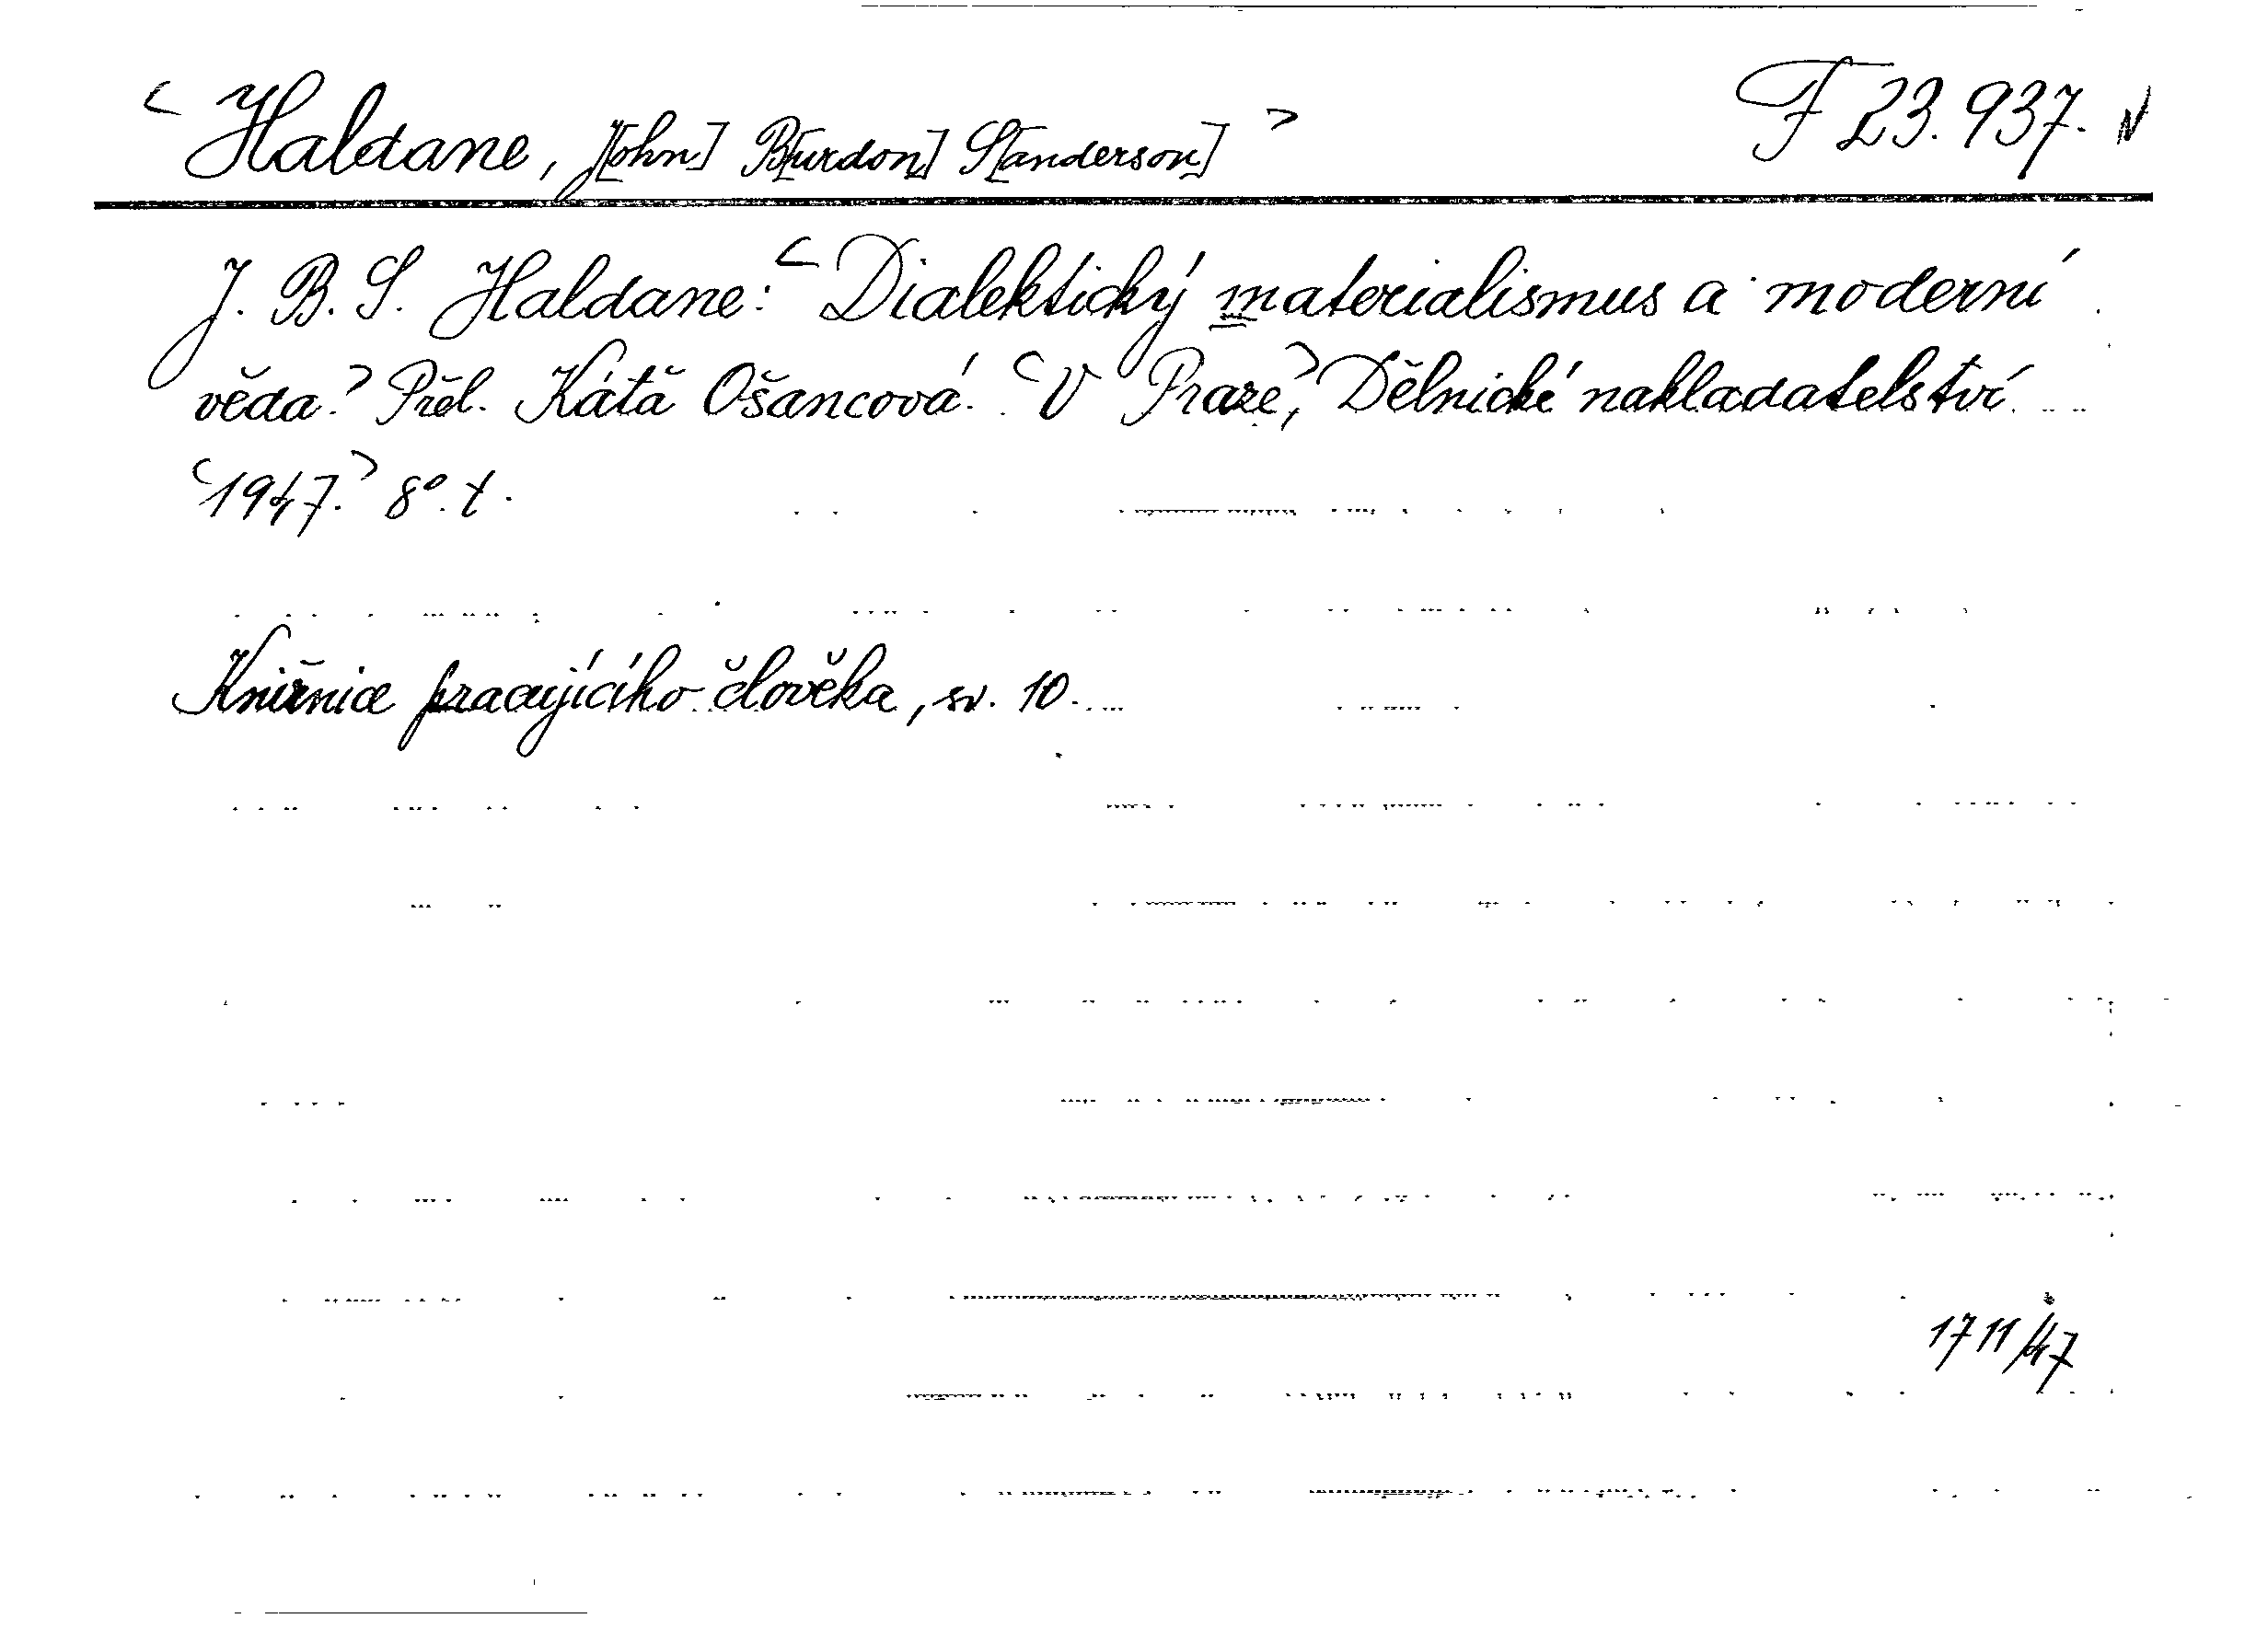 <Haldane, J[ohn] B[urdon] S[anderson]> F 23.937. N
J. B. S. Haldane: <Dialektický materialismus a moderní
věda.> Přel. Kátă Ošancová. <V Praze,> Dělnické nakladatelství
<1947.> 8°. t.
Knižnice pracujícího člověka, sv. 10.
1711/47